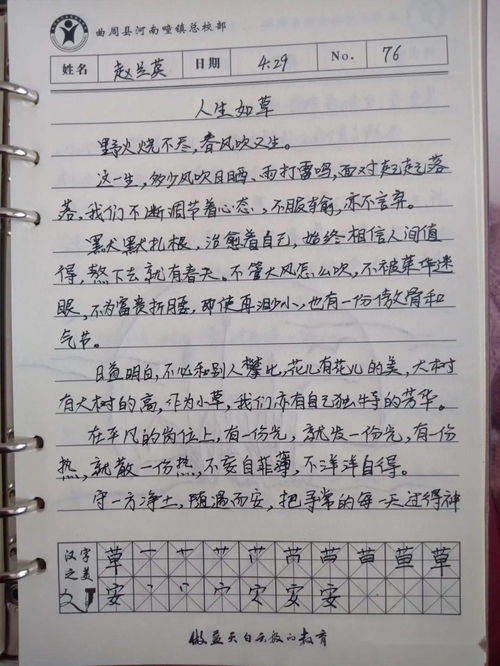 曲周县河南疃镇总校部
姓名 赵兰英 日期 4.29 No. 76
人生如草
野火烧不尽，春风吹又生。
这一生，多少风吹日晒、雨打雷鸣，面对起起落
落，我们不断调节着心态，不服输，亦不言弃。
默默扎根，治愈着自己，始终相信人间值
得，熬下去就有春天。不管大风怎么吹，不被草华迷
眼，不为富贵折腰，即使再渺小，也有一份傲骨和
气节。
日益明白，不必和别人攀比，花儿有花儿的美，大树
有大树的高，作为小草，我们亦有自己独特的芳华。
在平凡的岗位上，有一份光，就发一份光，有一份
热，就散一份热，不妄自菲薄，不洋洋自得。
守一方净土，随遇而安，把寻常的每一天过得神
汉字之美 草 草
安 安 安
做蓝天白云般的教育